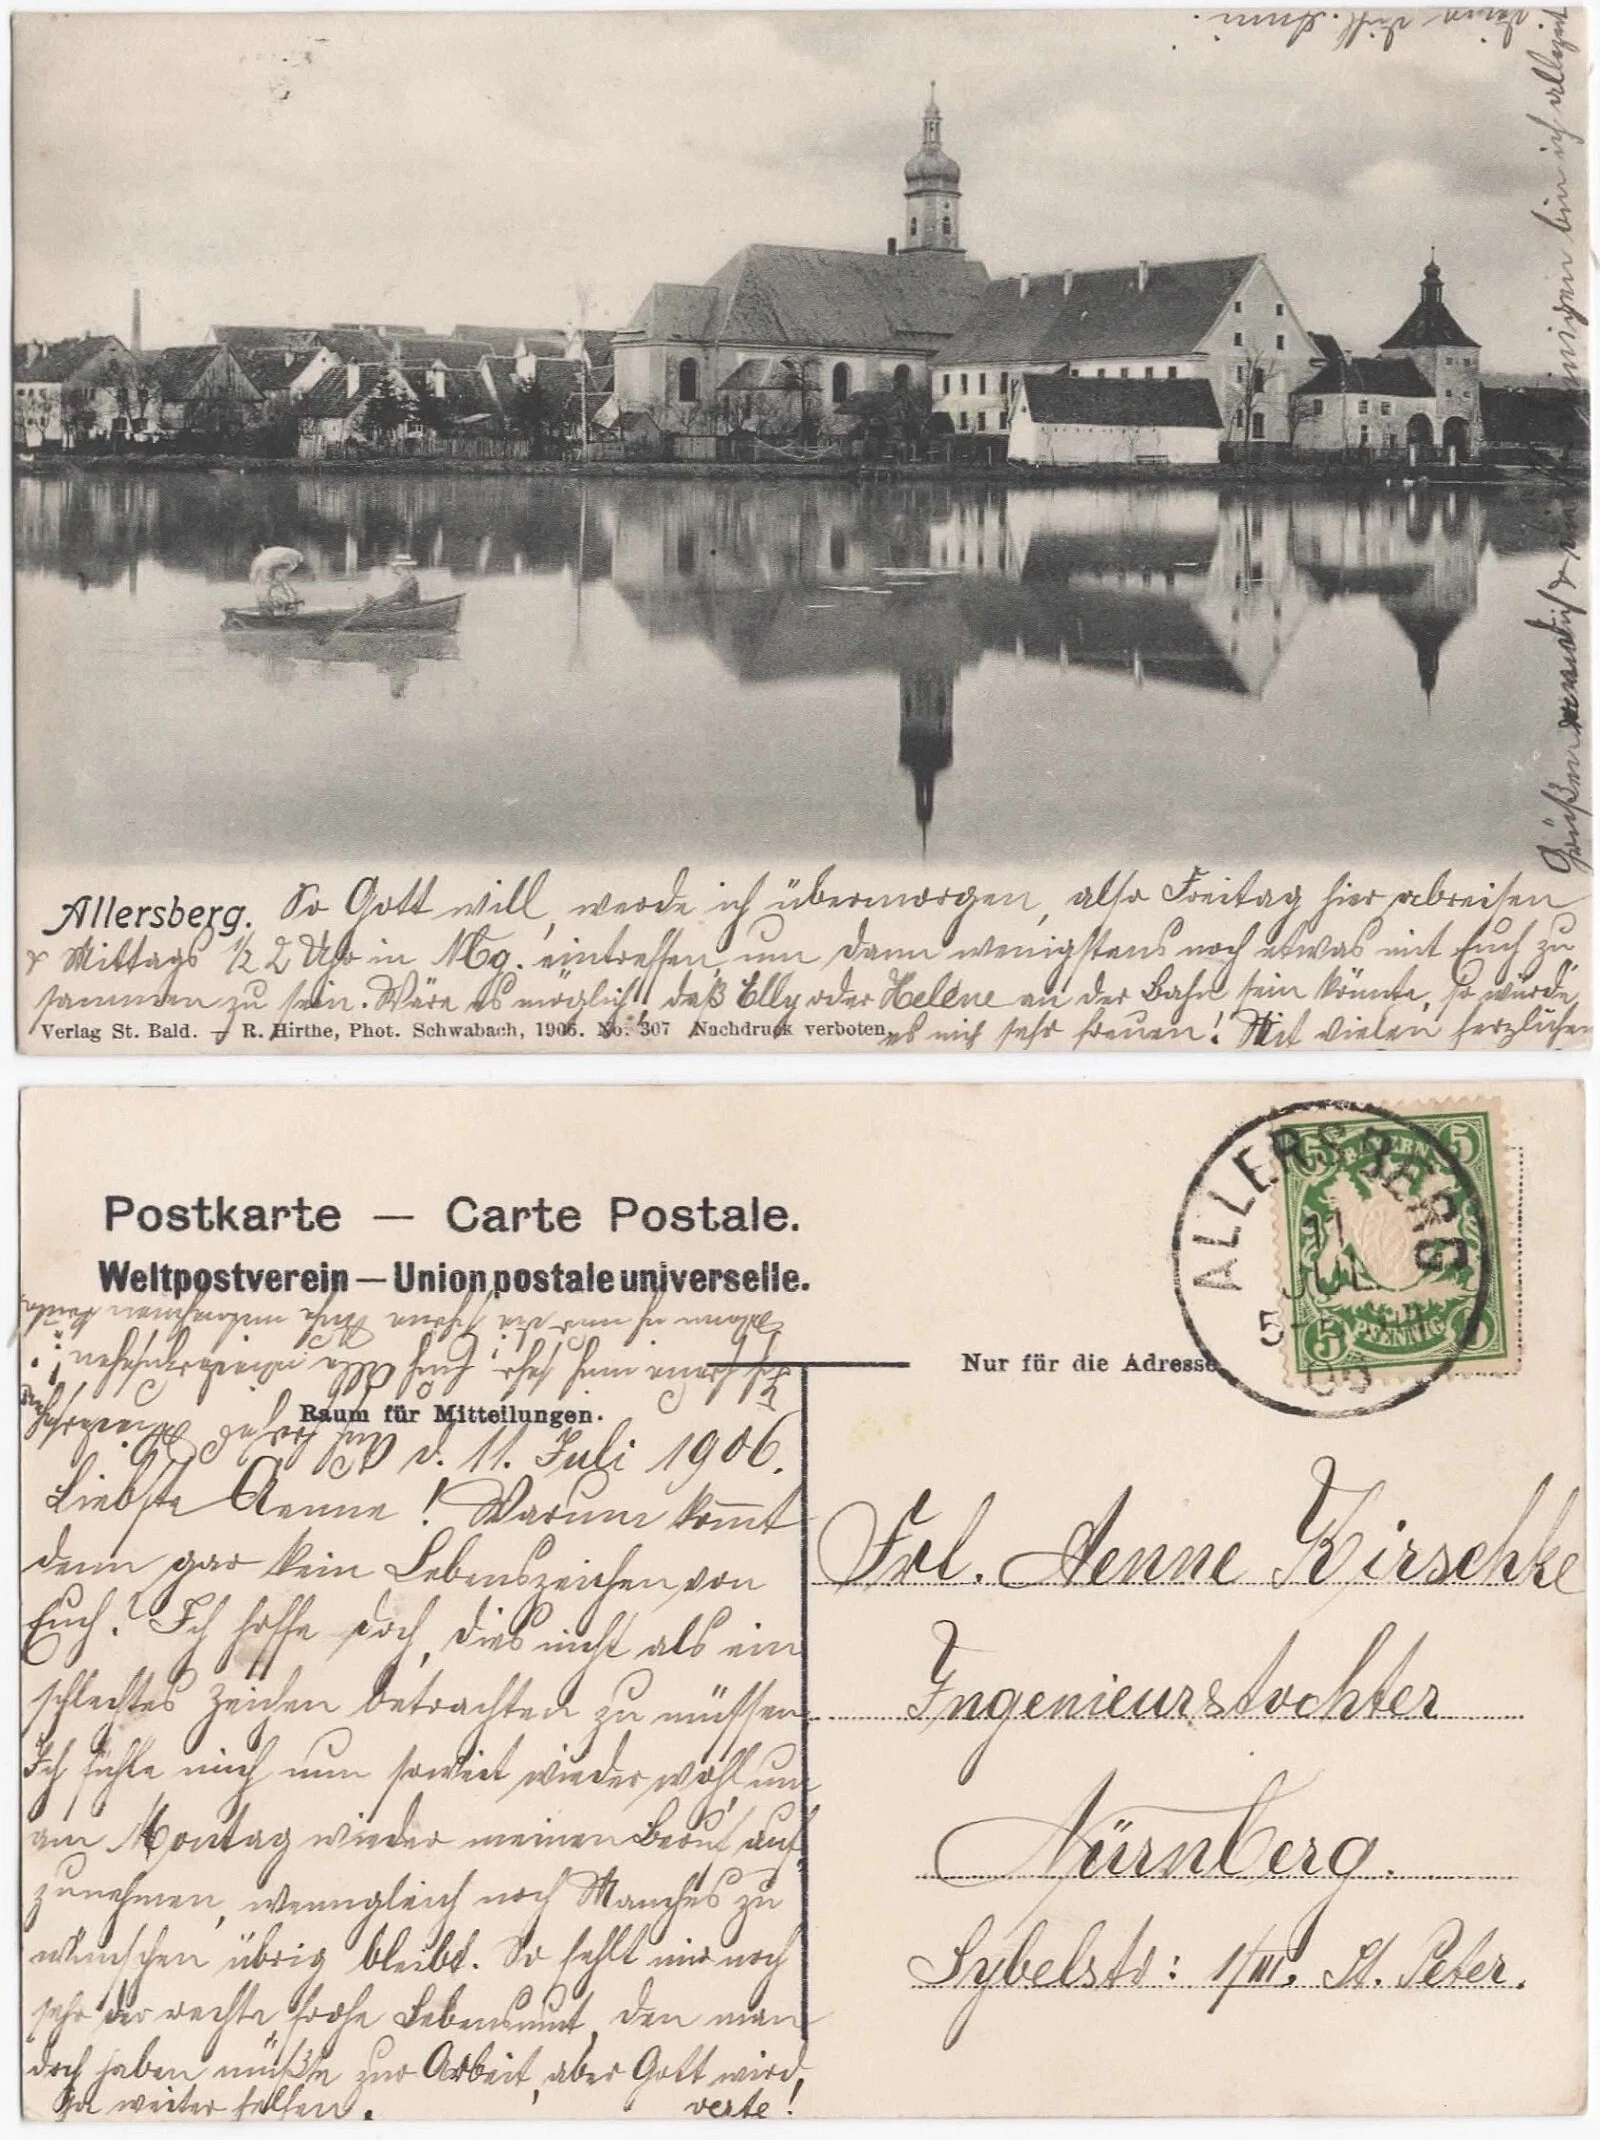 deine dich l. Anni.
Grüßen an dich & die Deinigen bin ich allezeit
Allersberg.
So Gott will, werde ich übermorgen, also Freitag hier abreisen
& Mittags 1/2 2 Uhr in Nbg. eintreffen, um dann wenigstens noch etwas mit Euch zu
sammen zu sein. Wäre es möglich, daß Elly oder Helene an der Bahn sein könnte, so würde
es mich sehr freuen! Mit vielen herzlichen
Verlag St. Bald. — R. Hirthe, Phot. Schwabach, 1906. No. 307 Nachdruck verboten.
Postkarte — Carte Postale.
Weltpostverein — Union postale universelle.
ALLERSBERG
11
JUL
5-6 NM
06
BAYERN
5 5
PFENNIG
5 5
Nur für die Adresse
Raum für Mitteilungen.
Ich freue mich sehr, Euch Alle wiederzusehen!
Auf frohes Wiedersehen
d. 11. Juli 1906.
Liebste Aenne! Warum kommt
denn gar kein Lebenszeichen von
Euch? Ich hoffe doch, dies nicht als ein
schlechtes Zeichen betrachten zu müssen.
Ich fühle mich nun soweit wieder wohl, um
am Montag wieder meinen Beruf auf
zunehmen, wenngleich noch Manches zu
wünschen übrig bleibt. So fehlt mir noch
sehr der rechte frohe Lebensmut, den man
doch haben müßte zur Arbeit, aber Gott wird
ja weiter helfen.
verte!
Frl. Aenne Kirschke
Ingenieurstochter
Nürnberg.
Sybelstr: 1/III. St. Peter.